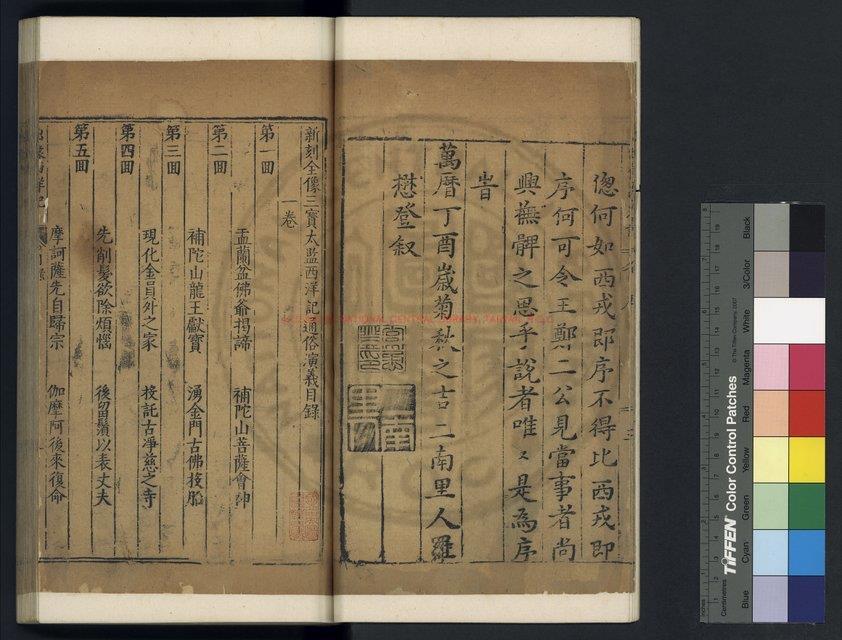 偬何如西戎即序不得比西戎即
序何可令王鄭二公見當事者尚
興撫髀之思乎說者唯〻是為序
旹
萬曆丁酉歲菊秋之吉二南里人羅
懋登叙
新刻全像三寶太監西洋記通俗演義目錄
一卷
第一回 盂蘭盆佛爺揭諦 補陀山菩薩會神
第二回 補陀山龍王獻寶 湧金門古佛投胎
第三回 現化金員外之家 投託古淨慈之寺
第四回 先削髮欲除煩惱 後留鬚以表丈夫
第五回 摩訶薩先自歸宗 伽摩阿後來復命
NATIONAL CENTRAL LIBRARY
Inches
Centimetres
TIFFEN Color Control Patches
© The Tiffen Company, 2007
Blue
Cyan
Green
Yellow
Red
Magenta
White
3/Color
Black